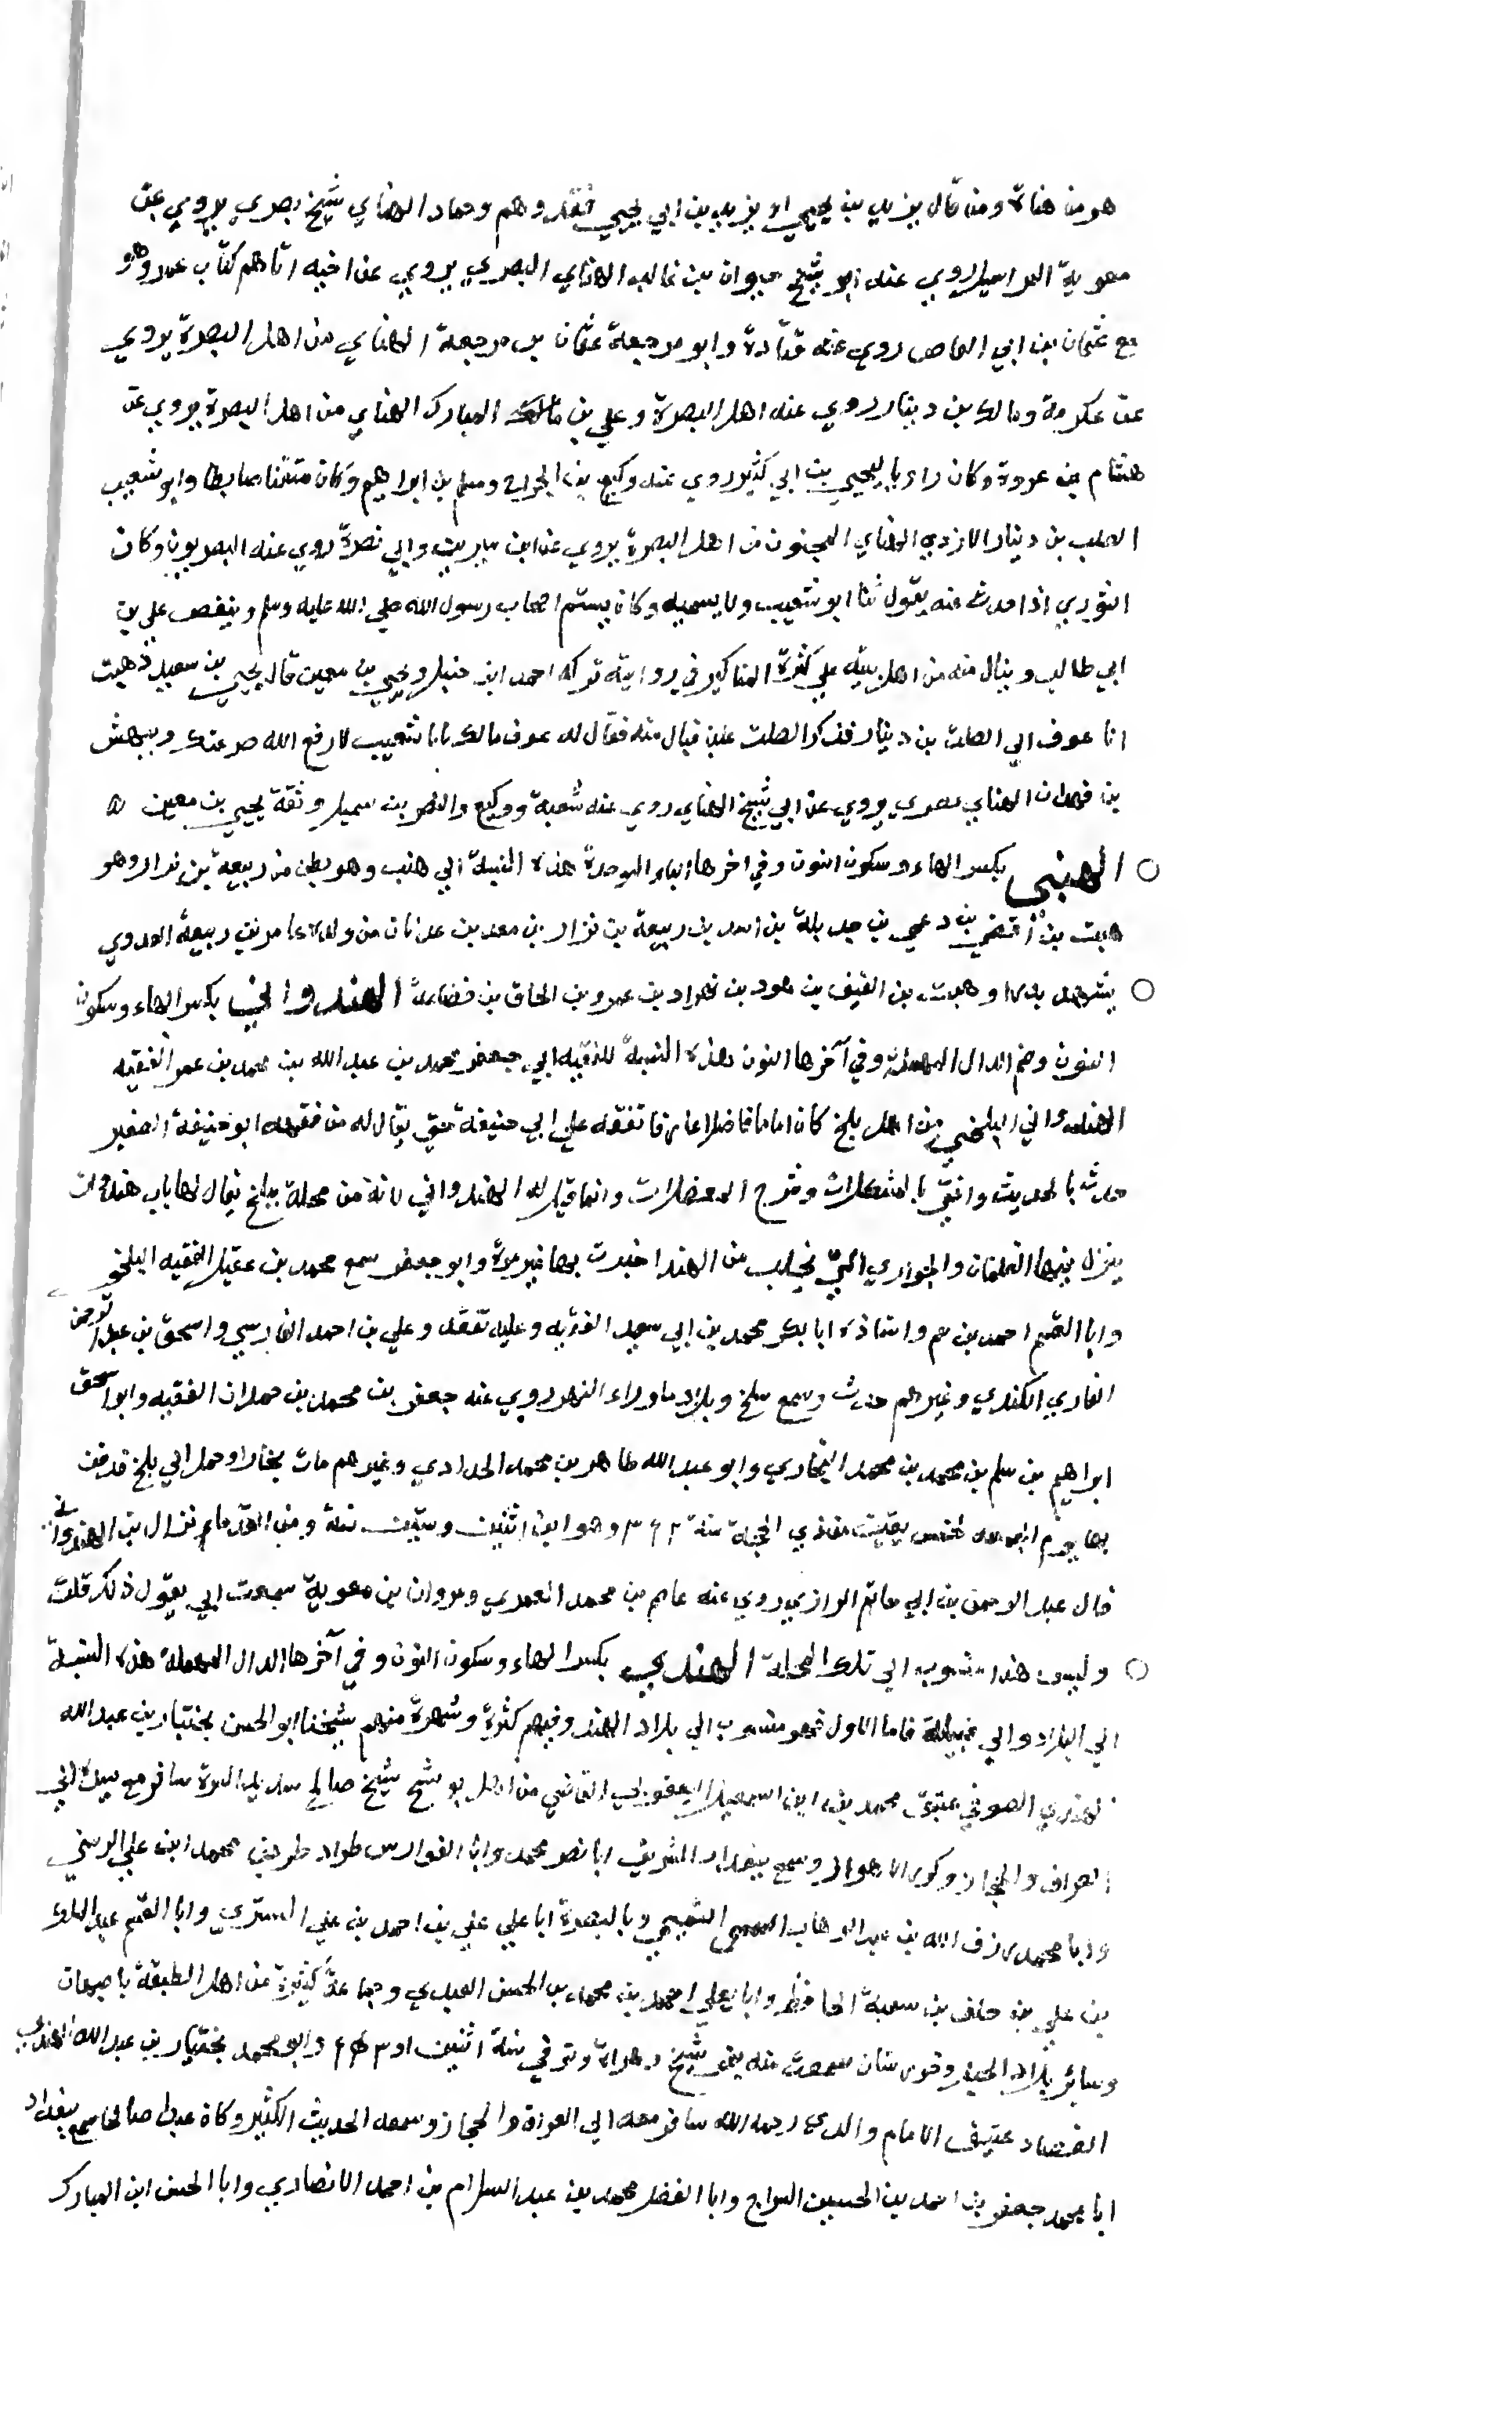 هو من هناة ومن قال يزيد بن يحيى او يزيد بن ابي يحيى فقد وهم وحماد الهناي شيخ بصري يروي عن
معوية روي عنه ابو شيخ حيوان بن خالد الهناي البصري يروي عن اخيه اتاهم كتاب عمر وهو
مع عثمان بن ابي العاص روي عنه قتادة وابو مرجعة عثمان بن مرجعة الهناي من اهل البصرة يروي
عن عكرمة ومالك بن دينار روي عنه اهل البصرة وعلي بن المبارك الهناي من اهل البصرة يروي عن
هشام بن عروة وكان راويا ليحيى بن ابي كثير روي عنه وكيع بن الجراح ومسلم بن ابراهيم وكان متقنا ضابطا وابو شعيب
الصلب بن دينار الازدي الهناي المجنون من اهل البصرة يروي عن ابن سيرين وابي نضرة روي عنه البصريون وكان
الثوري اذا حدث عنه يقول ثنا ابو شعيب ولا يسميه وكان يشتم اصحاب رسول الله صلي الله عليه وسلم وينقص علي بن
ابي طالب وينال منه من اهل بيته علي كثرة المناكير في روايته تركه احمد ابن حنبل ويحيى بن معين قال يحيى بن سعيد ذهبت
انا عوف الي الصلت بن دينار فذكر الصلت عليا فنال منه فقال له عوف مالك يابا شعيب لا رفع الله صرعتك وبيهش
بن فهدان الهناي بصري يروي عن ابي شيخ الهناي روي عنه شعبة ووكيع والنضر بن سميل وثقة يحيى بن معين ه
الهنبي بكسر الهاء وسكون النون وفي اخرها الباء الموحدة هذه النسبة الي هنب وهو بطن من ربيعة بن نزار وهو
هنب بن أفصي بن دعمي بن جديلة بن اسد بن ربيعة بن نزار بن معد بن عدنان من ولده عامر بن ربيعة العدوي
شهد بدرا وهنب بن القيف بن هود بن بهراد بن عمرو بن الحاق بن قضاعة الهندواني بكسر الهاء وسكون
النون وضم الدال المهملة وفي آخرها النون هذه النسبة للفقيه ابي جعفر محمد بن عبد الله بن محمد بن عمر الفقيه
الهندواني البلخي من اهل بلخ كان اماما فاضلا عارفا تفقه علي ابي حنيفة حتي يقال له من فقهه ابو حنيفة الصغير
حدث بالحديث وافتي بالمشكلات وشرح المعضلات وانما قيل له الهندواني لانه من محلة ببلخ يقال لها باب هندوان
ينزل فيها الغلمان والجواري التي تجلب من الهند اخبرت بها غير مرة وابو جعفر سمع محمد بن عقيل الفقيه البلخي
وابا القسم احمد بن حم واستاذه ابا بكر محمد بن ابي سعيد الفقيه وعليه تفقه وعلي بن احمد الفارسي واسحق بن عبد الرحمن
القاري الكندي وغيرهم حدث وسمع ببلخ وبلاد ماوراء النهر روي عنه جعفر بن محمد بن حمدان الفقيه وابو اسحق
ابراهيم بن سلم بن محمد بن محمد البخاري وابو عبد الله طاهر بن محمد الحدادي وغيرهم مات ببخارا وحمل الي بلخ فدفن
بها يوم الجمعة لخمس بقيت من ذي الحجة سنة ٣٦٢ وهو ابن اثنين وستين سنة ومن القدماء نزال بن الهندواني
قال عبد الرحمن بن ابي حاتم الرازي روي عنه عاصم بن محمد العمري ومروان بن معوية سمعت ابي يقول ذلك قلت
وليس هذا منسوب الي تلك المحلة الهندي بكسر الهاء وسكون النون وفي آخرها الدال المهملة هذه النسبة
الي البلاد والي قبيلة فاما الاول فهو منسوب الي بلاد الهند وفيهم كثرة وشهرة منهم شيخنا ابو الحسن بختيار بن عبد الله
الهندي الصوفي عتيق محمد بن ابن اسمعيل اليعقوبي القاضي من اهل بوشنج شيخ صالح سديد السيرة سافر مع سيده الي
العراق والحجاز وكور الاهواز وسمع ببغداد الشريف ابا نصر محمد وابا الفوارس طراد طرفي محمد ابن علي الزينبي
وابا محمد رزق الله بن عبد الوهاب التميمي وبالبصرة ابا علي علي بن احمد بن علي التستري وابا القسم عبد الملك
بن علي بن خلف بن سعبة الحافظ وابا يعلي احمد بن محمد بن الحسن العبدي وجماعة كثيرة من اهل الطبقة باصبهان
وسائر بلاد الجبل وخوزستان سمعت منه ببوشنج وهراة وتوفي سنة اثنين او ٥٤٣ وابو محمد بختيار بن عبد الله الهندي
الفصاد عتيق الامام والدي رحمه الله سافر معه الي العراق والحجاز وسمعه الحديث الكثير وكان عبدا صالحا سمع ببغداد
ابا محمد جعفر بن احمد بن الحسين السراج وابا الفضل محمد بن عبد السلام بن احمد الانصاري وابا الحسن ابن المبارك